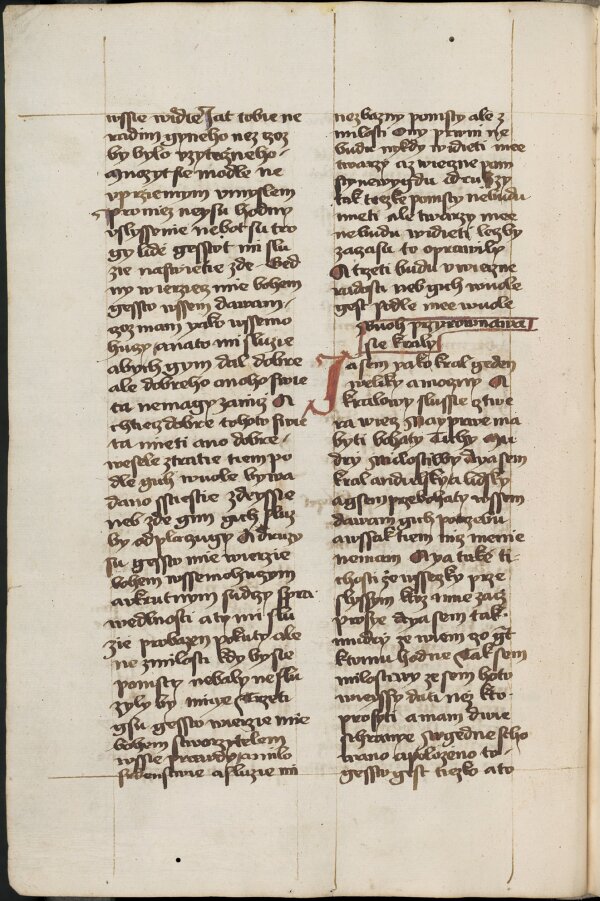 wssie widie Jat tobie ne
radim gyneho nez coz
by bylo vzyteczneho
A naczyt sie modle ne
vprziemym vmyslem
pro niez neysu hodny
vslyssenie nebot su tro
gy lide gessto mi slu
zie naswietie zde Ged
ny wierziecz mie bohem
gessto wssem dawam
coz mam yako wssemo
huczy a nato mi sluzie
abych gym dal dobre
ale dobreho onoho swie
ta nemagy zaniz A
chtiecz dobre tohoto swie
ta mieti ano dobre
wesele ztratie tiem po
dle gich wuole bywa
dano sstiestie zdeyssie
neb zde gim gich sluz
by odplaczugy A druzy
su gessto mie wierzie
bohem wssemohuczym
a ukrutnym sudczy spra
wedlnosti a ty mi slu
zie pro bazen pokuty ale
ne z milosti kdy by sie
pomsty nebaly ne slu
zyly by mnye Trzeti
gsu gessto wierzie mie
bohem stworzytelem
wssie prawdy a milo
srdenstwie a sluzie mi
nez bazny pomsty ale z
milosti Ony prwni ne
budu nykdy widieti mee
twarzy az wiecznee pom
sty newygdu druzy
tak tiezke pomsty nebudu
mieti ale twarzy mee
nebudu widieti lecz by
zaczasa to oprawily
A trzeti budu v wieczne
radosti neb gich wuole
gest podle mee wuole
buoh przyrownawa
sie kraly
Ja sem yako kral geden
weliky a moczny A
kralowy slussie cztwe
ra wiecz Nayprwe ma
byti bohaty Tichy Mu
dry Milostiwy A ya sem
kral andielsky a lidsky
a gsem przebohaty wssem
dawam gich potrzebu
a wssak tiem nicz menie
nemam A ya take ti
chosti ze wsseczky prze
slyssym kdyz mne zacz
prosye A ya sem tak
mudry ze wiem czo gest
ktomu hodne Tak sem
milostiwy ze sem hoto
wieyssy dati nez kto
prosyti a mam dwie
schranye w gedne scho
wano a polozeno to
gessto gest tiezko a to